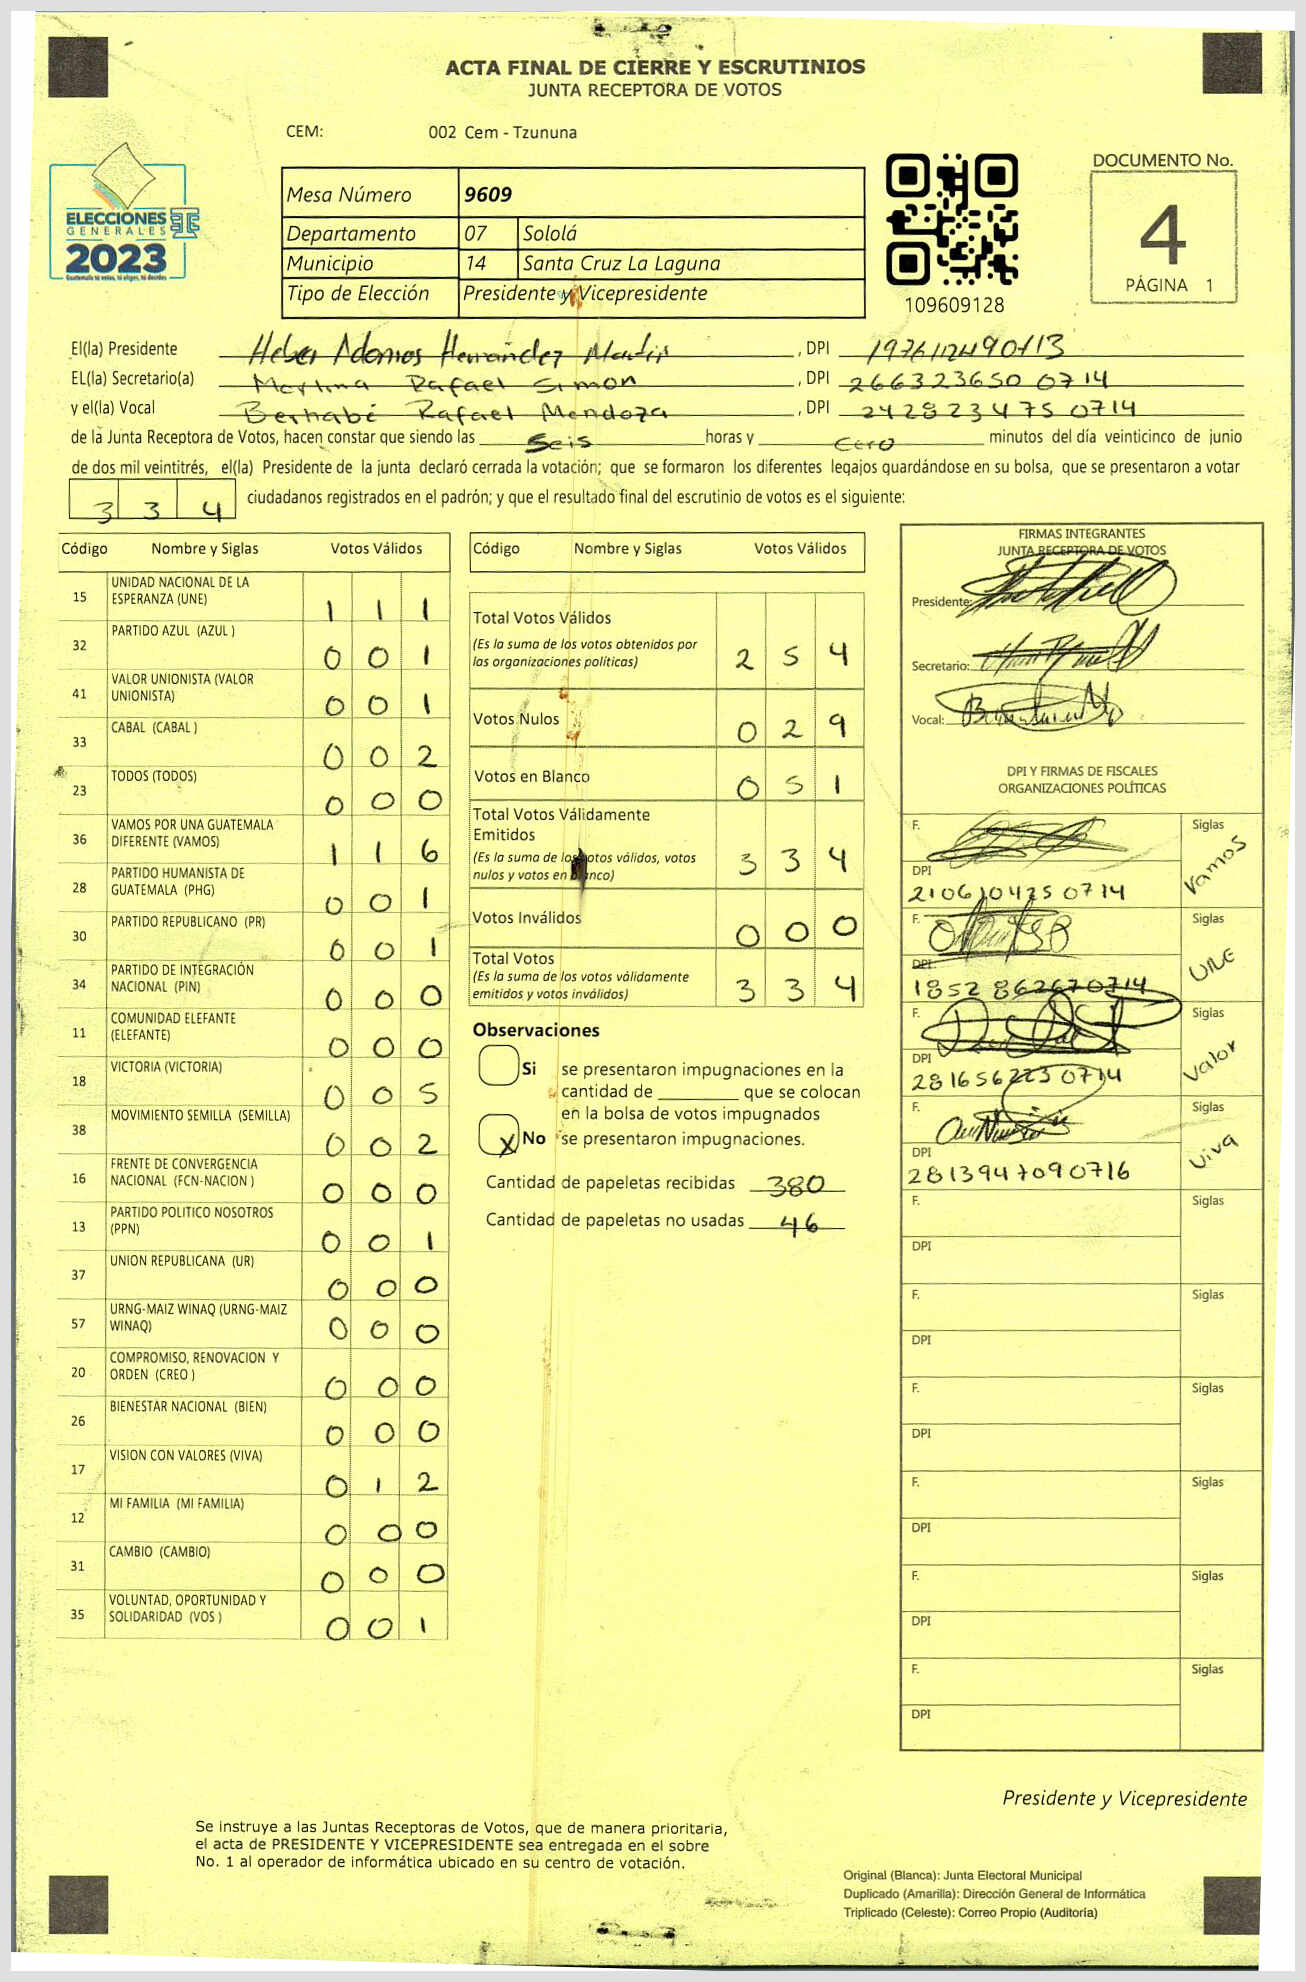 ACTA FINAL DE CIERRE Y ESCRUTINIOS
JUNTA RECEPTORA DE VOTOS
CEM: 002 Cem - Tzununa
ELECCIONES
GENERALES
2023
Guatemala tú votas, tú eliges, tú decides
Mesa Número 9609
Departamento 07 Sololá
Municipio 14 Santa Cruz La Laguna
Tipo de Elección Presidente y Vicepresidente
109609128
DOCUMENTO No.
4
PÁGINA 1
El(la) Presidente Heber Hernández , DPI
EL(la) Secretario(a) Martina Rafael Simon , DPI 266323650 0714
y el(la) Vocal Bernabé Rafael Mendoza , DPI 242823475 0714
de la Junta Receptora de Votos, hacen constar que siendo las Seis horas y Cero minutos del día veinticinco de junio
de dos mil veintitrés, el(la) Presidente de la junta declaró cerrada la votación; que se formaron los diferentes legajos guardándose en su bolsa, que se presentaron a votar
3 3 4 ciudadanos registrados en el padrón; y que el resultado final del escrutinio de votos es el siguiente:
Código Nombre y Siglas Votos Válidos
15 UNIDAD NACIONAL DE LA ESPERANZA (UNE) 1 1 1
32 PARTIDO AZUL (AZUL ) 0 0 1
41 VALOR UNIONISTA (VALOR UNIONISTA) 0 0 1
33 CABAL (CABAL ) 0 0 2
23 TODOS (TODOS) 0 0 0
36 VAMOS POR UNA GUATEMALA DIFERENTE (VAMOS) 1 1 6
28 PARTIDO HUMANISTA DE GUATEMALA (PHG) 0 0 1
30 PARTIDO REPUBLICANO (PR) 0 0 1
34 PARTIDO DE INTEGRACIÓN NACIONAL (PIN) 0 0 0
11 COMUNIDAD ELEFANTE (ELEFANTE) 0 0 0
18 VICTORIA (VICTORIA) 0 0 5
38 MOVIMIENTO SEMILLA (SEMILLA) 0 0 2
16 FRENTE DE CONVERGENCIA NACIONAL (FCN-NACION ) 0 0 0
13 PARTIDO POLITICO NOSOTROS (PPN) 0 0 1
37 UNION REPUBLICANA (UR) 0 0 0
57 URNG-MAIZ WINAQ (URNG-MAIZ WINAQ) 0 0 0
20 COMPROMISO, RENOVACION Y ORDEN (CREO ) 0 0 0
26 BIENESTAR NACIONAL (BIEN) 0 0 0
17 VISION CON VALORES (VIVA) 0 1 2
12 MI FAMILIA (MI FAMILIA) 0 0 0
31 CAMBIO (CAMBIO) 0 0 0
35 VOLUNTAD, OPORTUNIDAD Y SOLIDARIDAD (VOS ) 0 0 1
Código Nombre y Siglas Votos Válidos
Total Votos Válidos
(Es la suma de los votos obtenidos por
las organizaciones políticas) 2 5 4
Votos Nulos 0 2 9
Votos en Blanco 0 5 1
Total Votos Válidamente
Emitidos
(Es la suma de los votos válidos, votos
nulos y votos en blanco) 3 3 4
Votos Inválidos 0 0 0
Total Votos
(Es la suma de los votos válidamente
emitidos y votos inválidos) 3 3 4
Observaciones
Si se presentaron impugnaciones en la
cantidad de ________ que se colocan
en la bolsa de votos impugnados
X No se presentaron impugnaciones.
Cantidad de papeletas recibidas 380
Cantidad de papeletas no usadas 46
FIRMAS INTEGRANTES
JUNTA RECEPTORA DE VOTOS
Presidente:
Secretario:
Vocal:
DPI Y FIRMAS DE FISCALES
ORGANIZACIONES POLÍTICAS
F. Siglas Vamos
DPI
210610425 0714
F. Siglas UNE
DPI
1852 862670714
F. Siglas Valor
DPI
281656223 0714
F. Siglas Viva
DPI
2813947090716
F. Siglas
DPI
F. Siglas
DPI
F. Siglas
DPI
F. Siglas
DPI
F. Siglas
DPI
F. Siglas
DPI
Presidente y Vicepresidente
Se instruye a las Juntas Receptoras de Votos, que de manera prioritaria,
el acta de PRESIDENTE Y VICEPRESIDENTE sea entregada en el sobre
No. 1 al operador de informática ubicado en su centro de votación.
Original (Blanca): Junta Electoral Municipal
Duplicado (Amarilla): Dirección General de Informática
Triplicado (Celeste): Correo Propio (Auditoría)